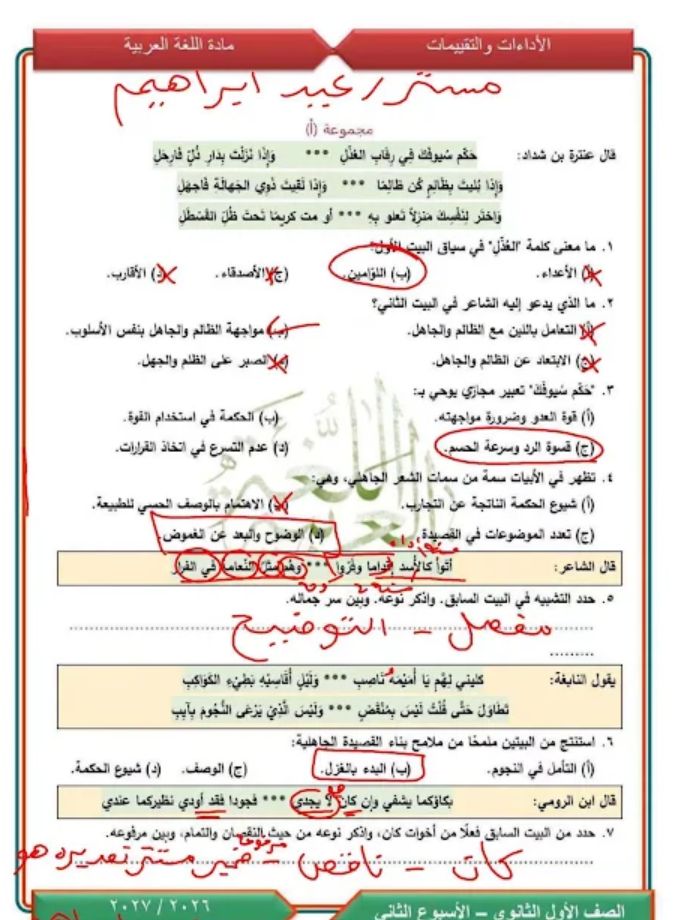 الأداءات والتقييمات
مادة اللغة العربية
مستر / عبيد ابراهيم
مجموعة (أ)
قال عنترة بن شداد: حَكِّم سُيوفَكَ في رِقابِ العُذَّلِ *** وَإِذا نَزَلتَ بِدارِ ذُلٍّ فَاِرحَلِ
وَإِذا بُليتَ بِظالِمٍ كُن ظالِمًا *** وَإِذا لَقيتَ ذَوي الجَهالَةِ فَاجهَلِ
وَاختَر لِنَفسِكَ مَنزِلًا تَعلو بِهِ *** أَو مُت كَريمًا تَحتَ ظِلِّ القَسطَلِ
١. ما معنى كلمة "العُذَّلِ" في سياق البيت الأول:
(أ) الأعداء. (ب) اللوّامين. (ج) الأصدقاء. (د) الأقارب.
٢. ما الذي يدعو إليه الشاعر في البيت الثاني؟
(أ) التعامل باللين مع الظالم والجاهل. (ب) مواجهة الظالم والجاهل بنفس الأسلوب.
(ج) الابتعاد عن الظالم والجاهل. (د) الصبر على الظلم والجهل.
٣. "حَكِّم سُيوفَكَ" تعبير مجازي يوحي بـ:
(أ) قوة العدو وضرورة مواجهته. (ب) الحكمة في استخدام القوة.
(ج) قسوة الرد وسرعة الحسم. (د) عدم التسرع في اتخاذ القرارات.
٤. تظهر في الأبيات سمة من سمات الشعر الجاهلي، وهي:
(أ) شيوع الحكمة الناتجة عن التجارب. (ب) الاهتمام بالوصف الحسي للطبيعة.
(ج) تعدد الموضوعات في القصيدة. (د) الوضوح والبعد عن الغموض.
قال الشاعر: أتوا كالأسد إقداما وفروا *** وهم مثل النعامة في الفرار
٥. حدد التشبيه في البيت السابق. واذكر نوعه. وبين سر جماله.
مفصل - التوضيح
يقول النابغة: كليني لِهَمٍّ يَا أُمَيْمَةَ نَاصِبِ *** وَلَيْلٍ أُقَاسِيْهِ بَطِيْءِ الكَوَاكِبِ
تَطَاوَلَ حَتَّى قُلْتُ لَيْسَ بِمُنْقَضٍ *** وَلَيْسَ الَّذِيْ يَرْعَى النُّجُومَ بِآيِبِ
٦. استنتج من البيتين ملمحًا من ملامح بناء القصيدة الجاهلية:
(أ) التأمل في النجوم. (ب) البدء بالغزل. (ج) الوصف. (د) شيوع الحكمة.
قال ابن الرومي: بكاؤكما يشفي وإن كان لا يجدي *** فجودا فقد أودي نظيركما عندي
٧. حدد من البيت السابق فعلًا من أخوات كان، واذكر نوعه من حيث النقصان والتمام، وبين مرفوعه.
كان - ناقص - مرفوعها ضمير مستتر تقديره هو
الصف الأول الثانوي – الأسبوع الثاني
٢٠٢٦ / ٢٠٢٧